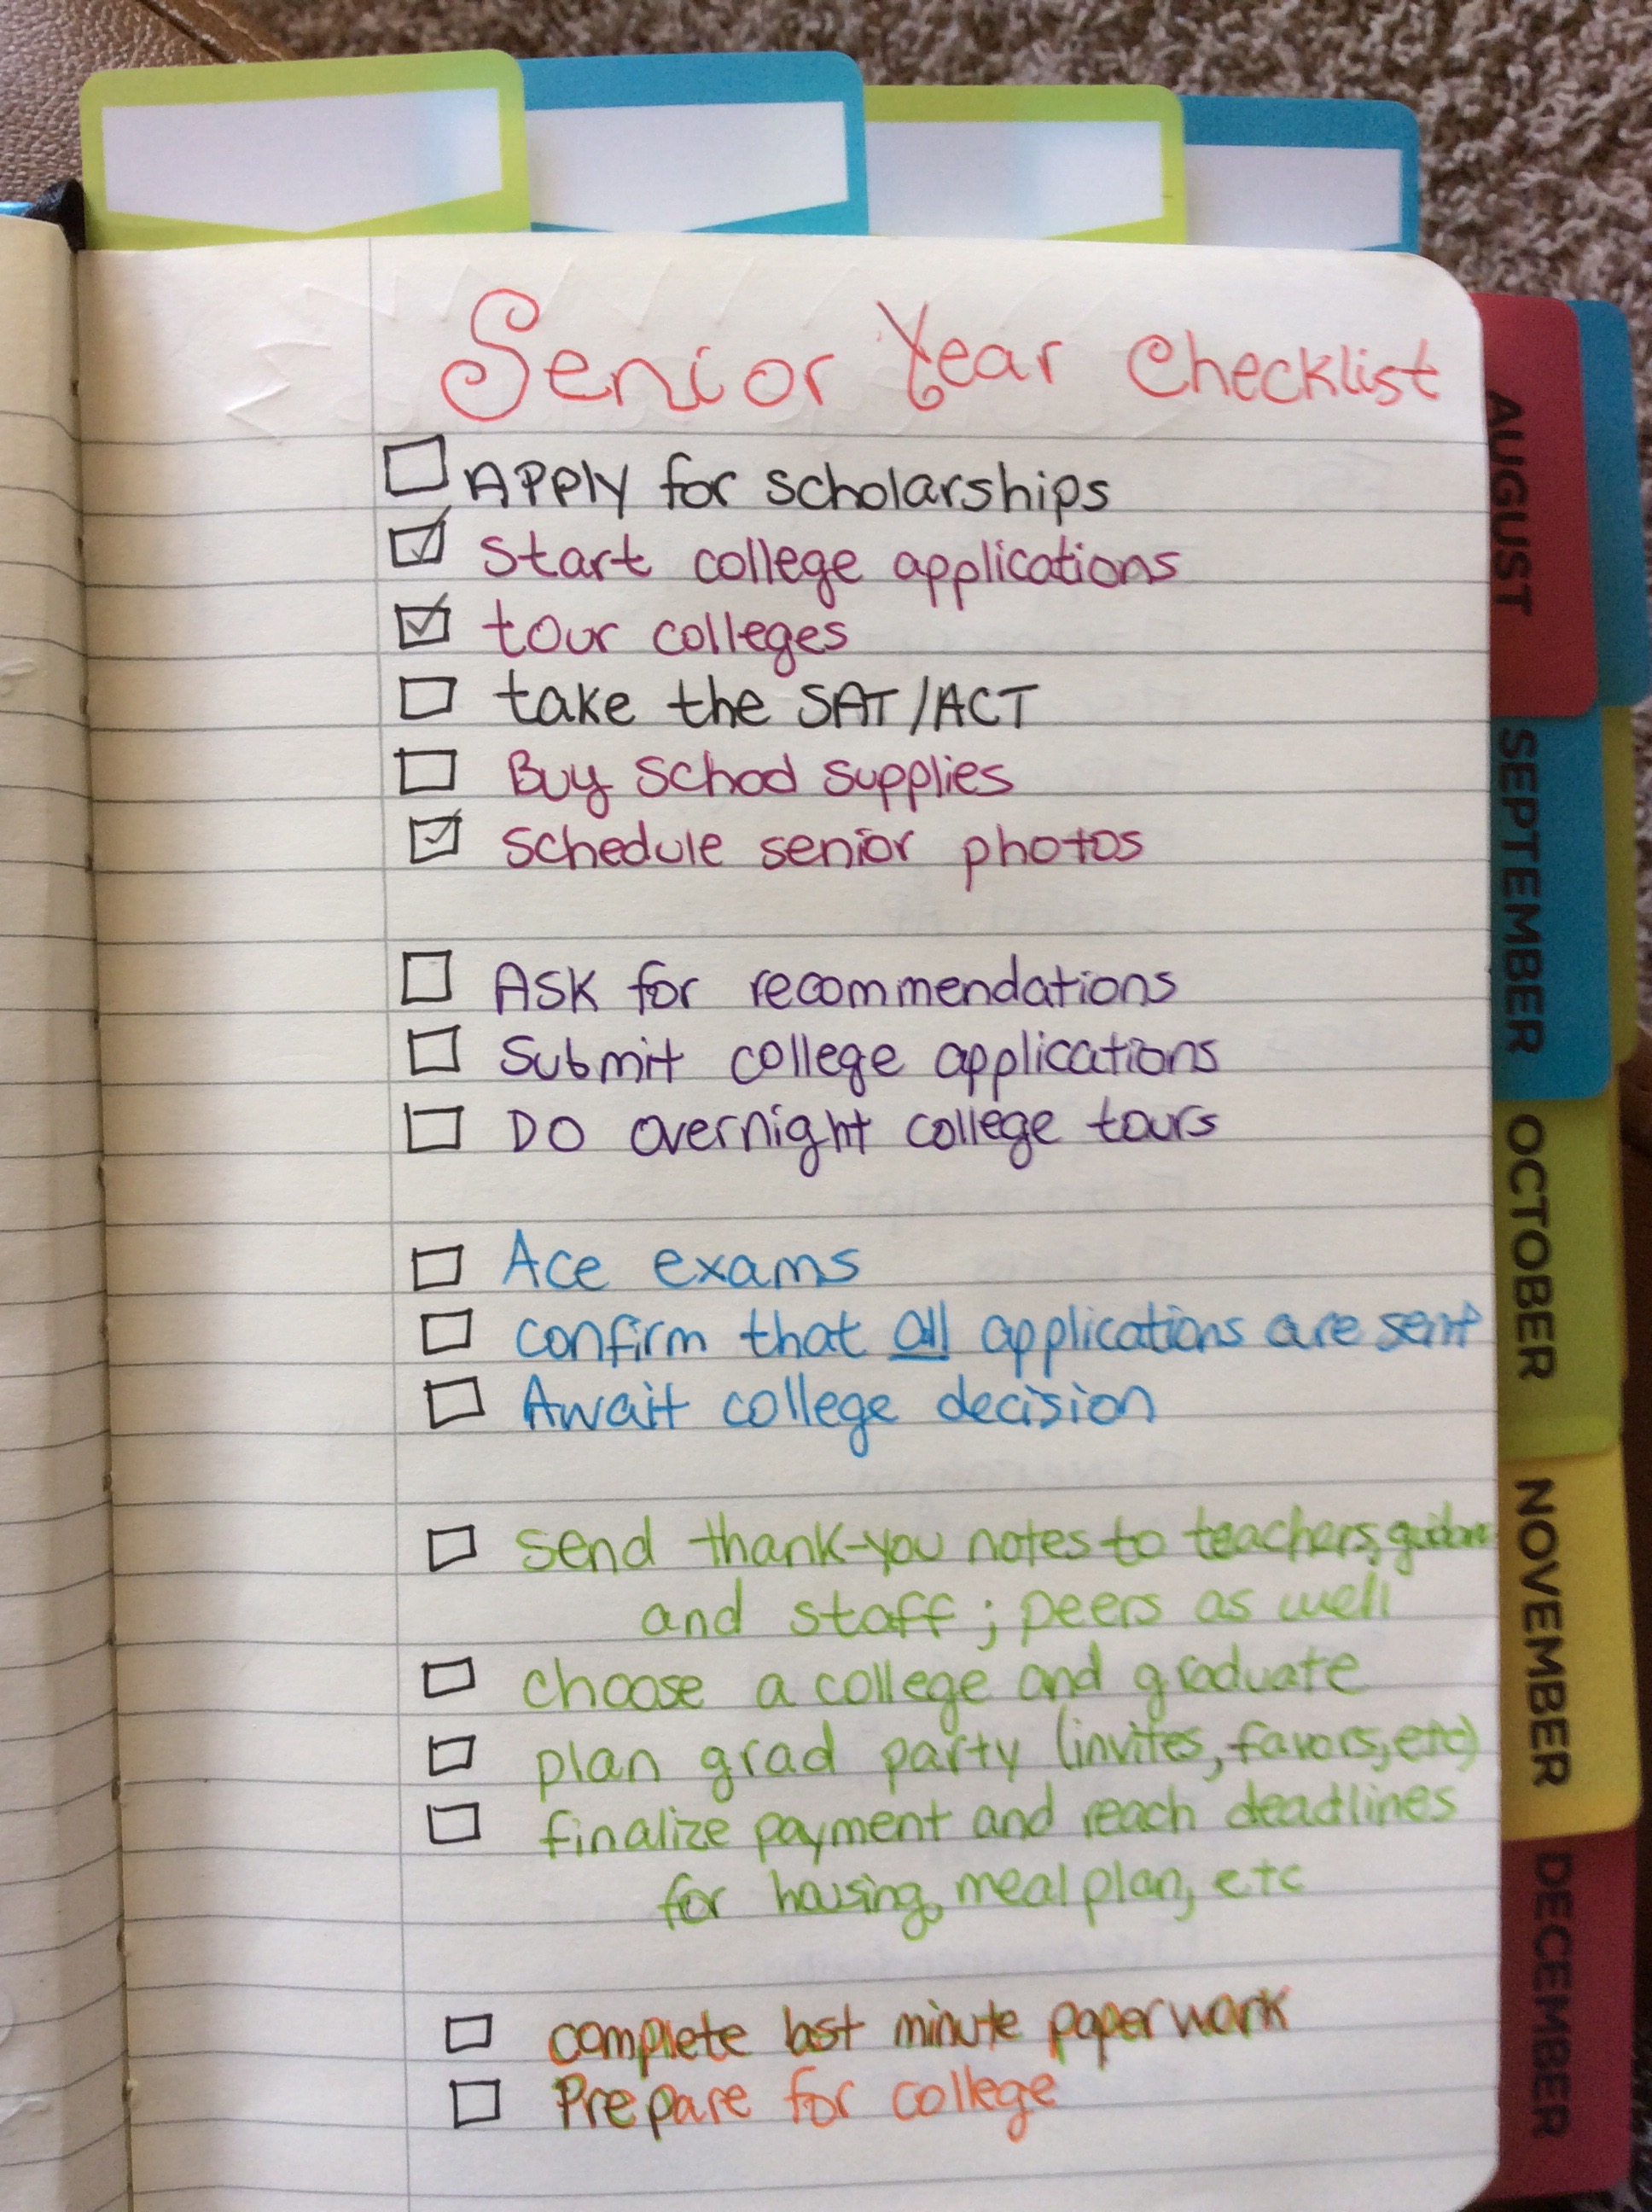 Senior Year Checklist
Apply for scholarships
Start college applications
tour colleges
take the SAT/ACT
Buy School supplies
Schedule senior photos
Ask for recommendations
Submit college applications
Do overnight college tours
Ace exams
confirm that all applications are sent
Await college decision
send thank-you notes to teachers, guidance
and staff; peers as well
choose a college and graduate
plan grad party (invites, favors, etc)
finalize payment and reach deadlines
for housing, meal plan, etc
complete last minute paperwork
Prepare for college
AUGUST
SEPTEMBER
OCTOBER
NOVEMBER
DECEMBER